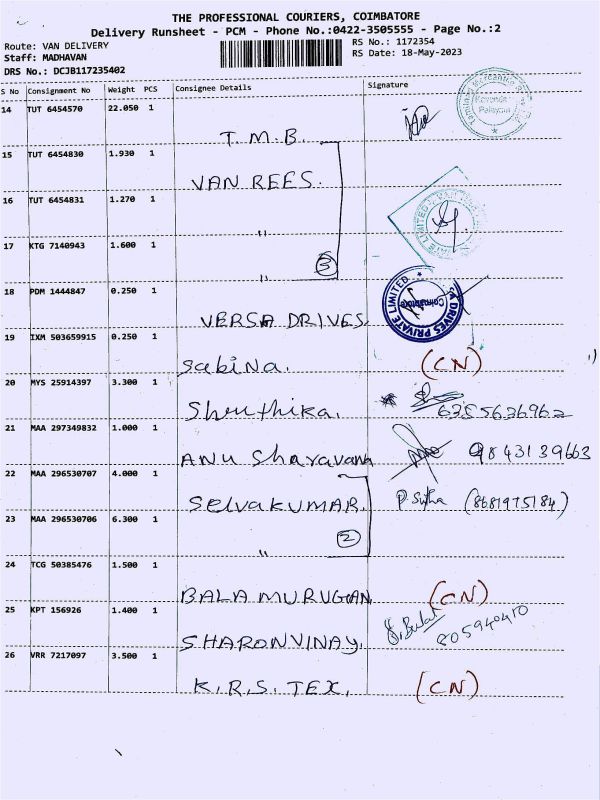 THE PROFESSIONAL COURIERS, COIMBATORE
Delivery Runsheet - PCM - Phone No.:0422-3505555 - Page No.:2
Route: VAN DELIVERY
RS No.: 1172354
Staff: MADHAVAN
RS Date: 18-May-2023
DRS No.: DCJB117235402
S No Consignment No Weight PCS Consignee Details Signature
14 TUT 6454570 22.050 1
T.M.B.
15 TUT 6454830 1.930 1
VAN REES.
16 TUT 6454831 1.270 1
"
17 KTG 7140943 1.600 1
" 3
18 PDM 1444847 0.250 1
VERSA DRIVES. DRIVES PRIVATE LIMITED Coimbatore
19 IXM 503659915 0.250 1
Sabina. (CN)
20 MYS 25914397 3.300 1
Shruthika. 6385636962
21 MAA 297349832 1.000 1
ANU Sharavana 9843139663
22 MAA 296530707 4.000 1
SELVAKUMAR. P. Sutha (8681975184)
23 MAA 296530706 6.300 1
" 2
24 TCG 50385476 1.500 1
BALAMURUGAN (CN)
25 KPT 156926 1.400 1
SHARONVINAY. 805940410
26 VRR 7217097 3.500 1
K.R.S. TEX. (CN)